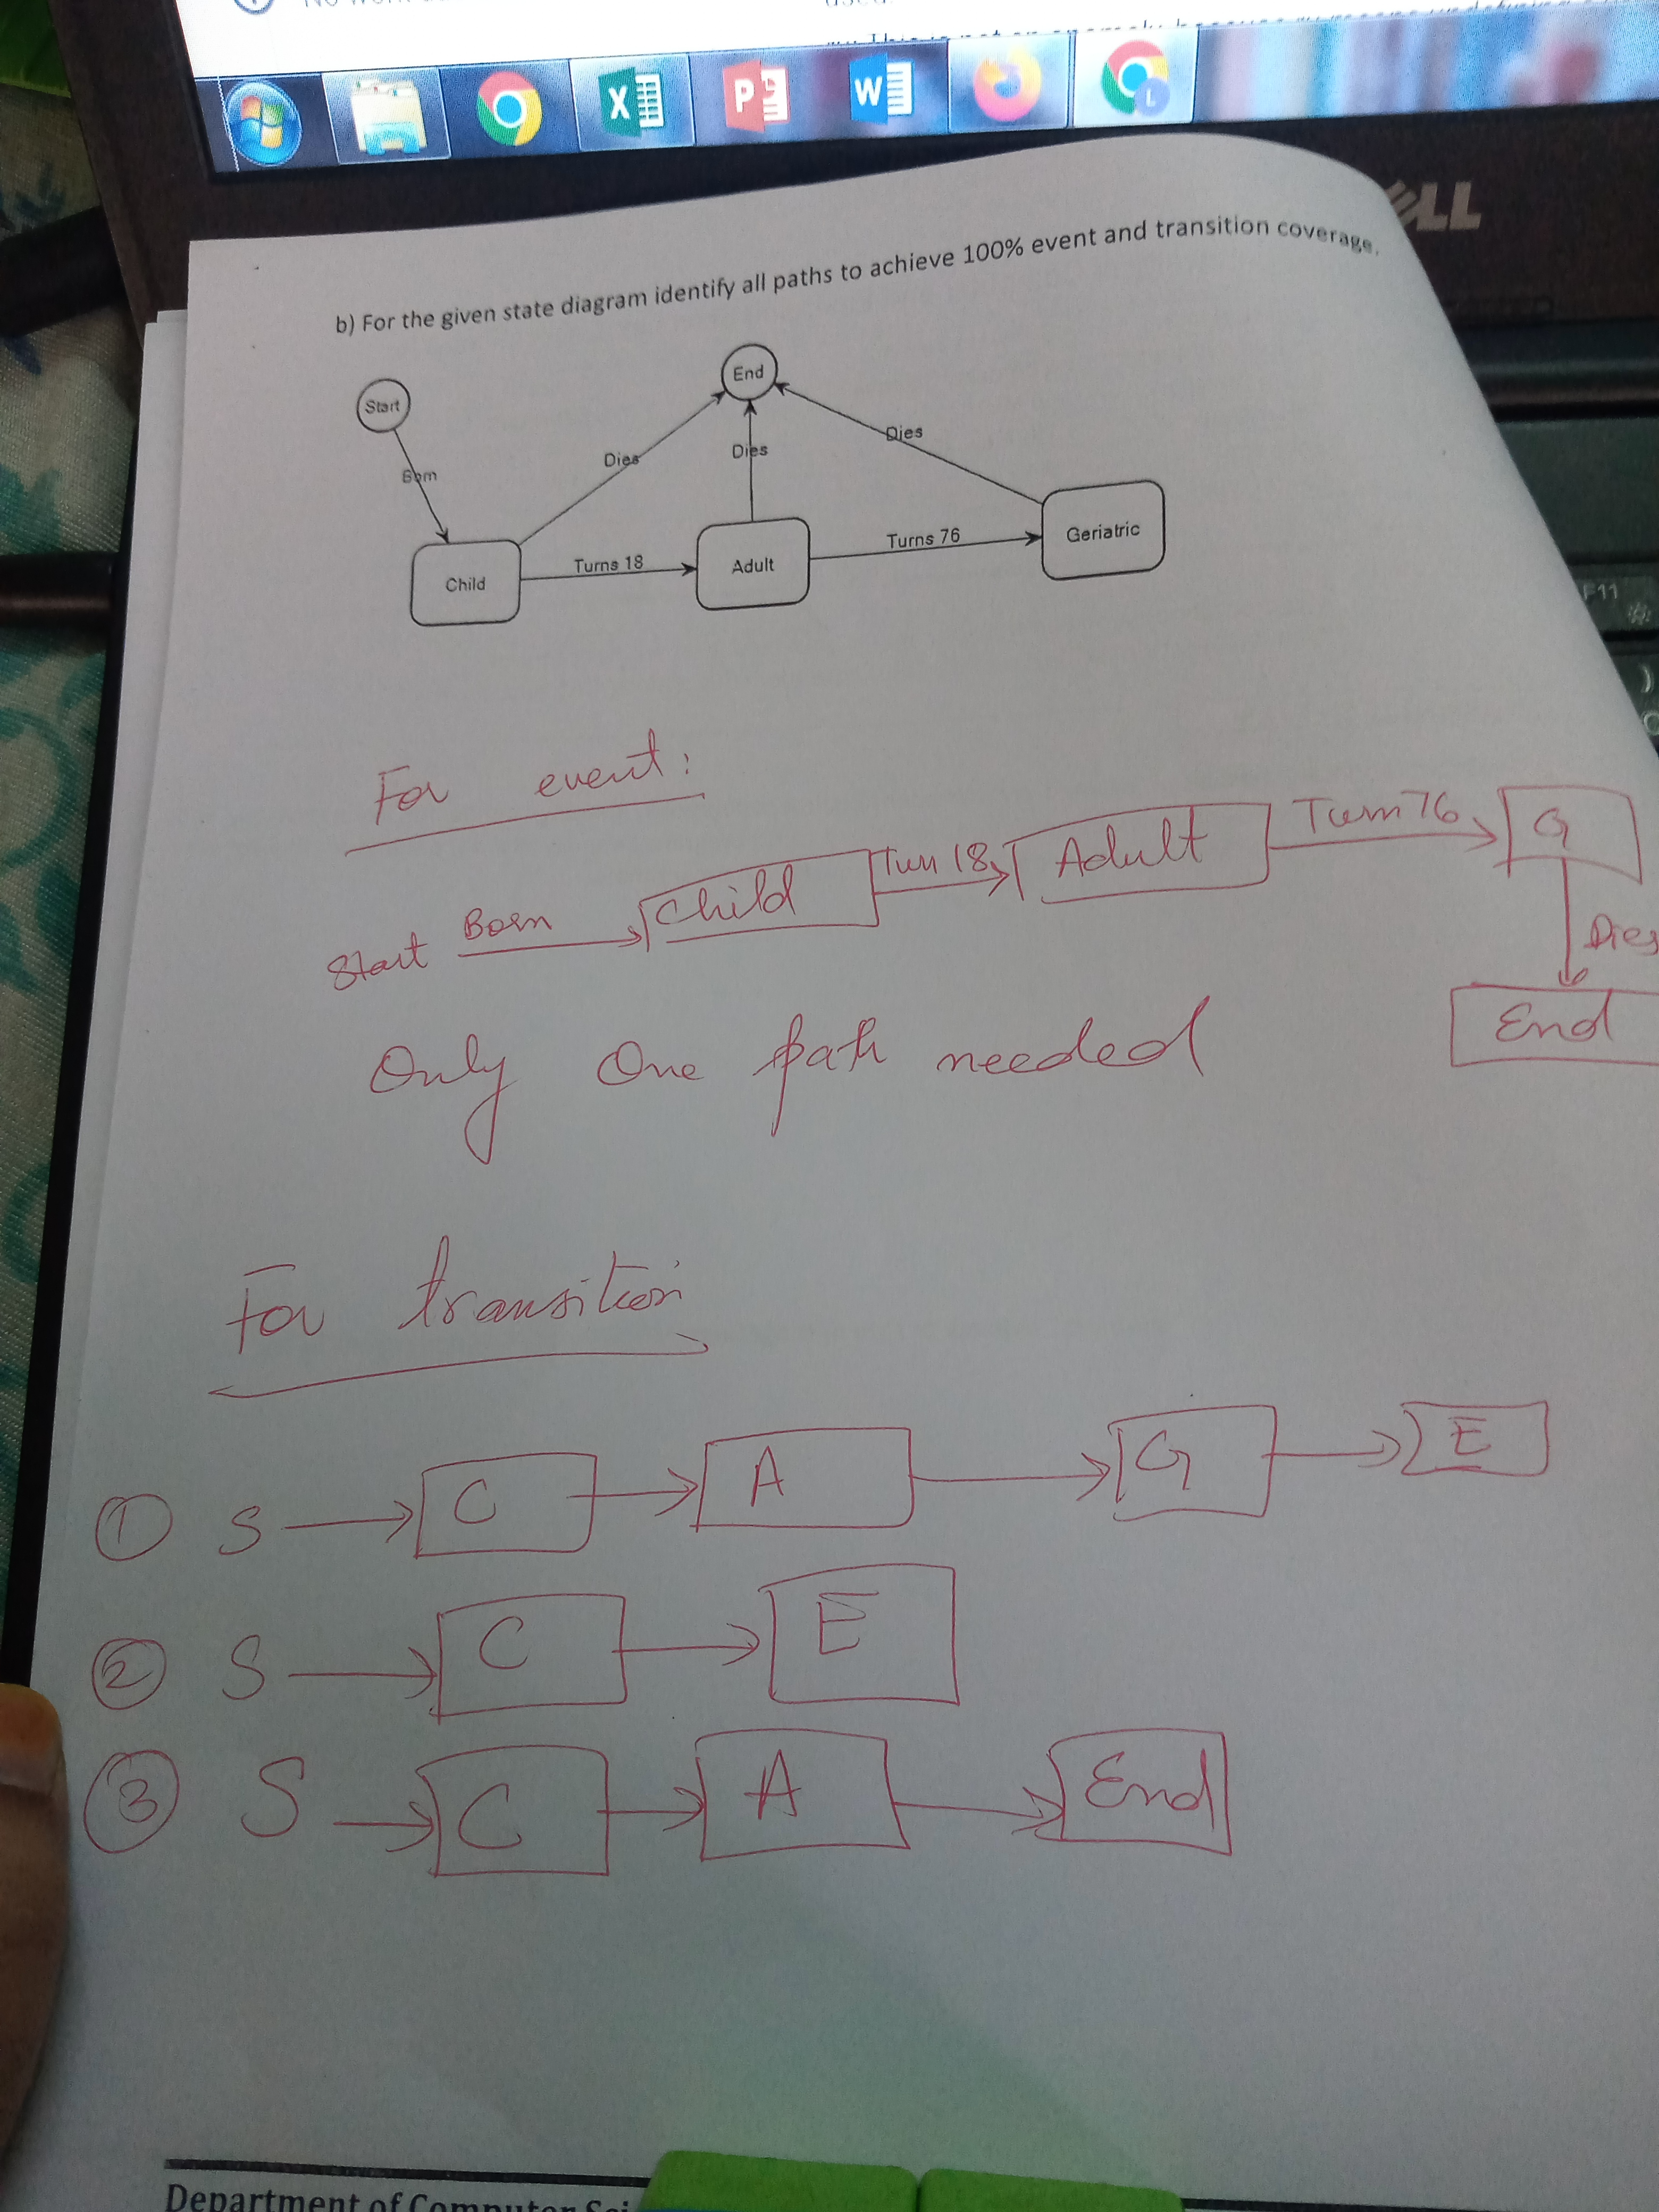 used.
X
P
W
L
DELL
b) For the given state diagram identify all paths to achieve 100% event and transition coverage.
Start
End
Born
Dies
Dies
Dies
Child
Turns 18
Adult
Turns 76
Geriatric
F11
For event:
Start Born Child Turn 18 Adult Turn 76 G
Dies
End
Only One path needed
For transition
① S C A G E
② S C E
③ S C A End
Department of Computer Sci